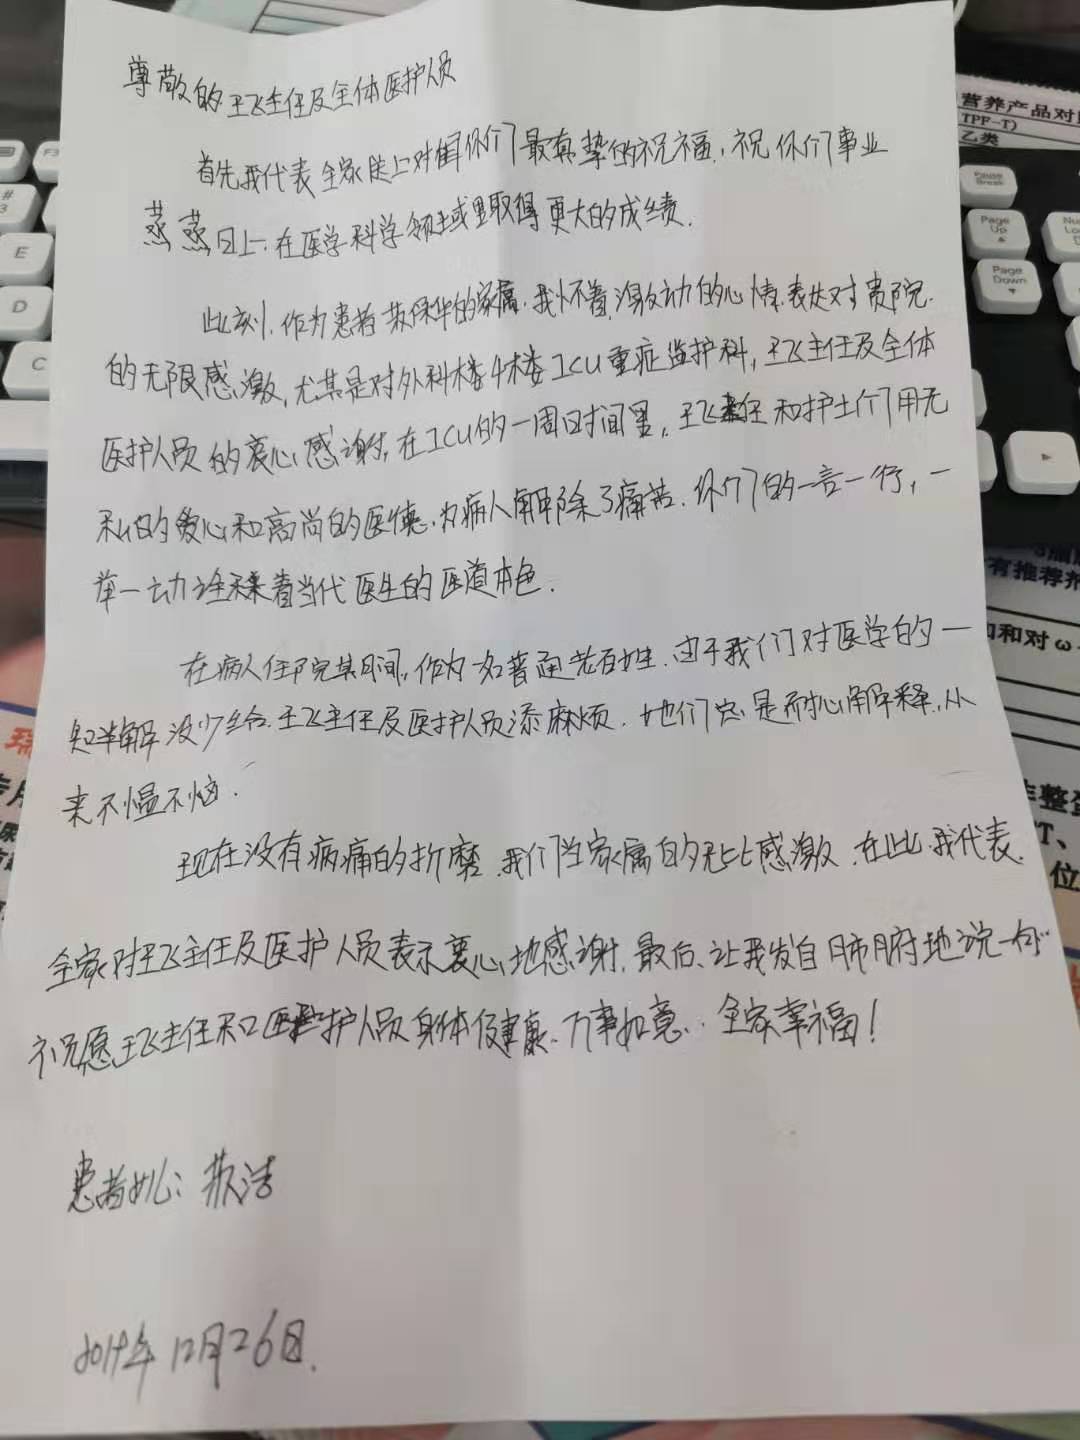 尊敬的王飞主任及全体医护人员
首先我代表全家送上对你们最真挚的祝福，祝你们事业
蒸蒸日上.在医学科学领域里取得更大的成绩.
此刻，作为患者 苏保华的家属.我怀着激动的心情表达对贵院.
的无限感激，尤其是对外科楼4楼ICU重症监护科，王飞主任及全体
医护人员的衷心感谢，在ICU的一周时间里，王飞主任和护士们用无
私的爱心和高尚的医德，为病人解除了痛苦.你们的一言一行，一
举一动诠释着当代医生的医道本色.
在病人住院期间，作为一名普通老百姓.由于我们对医学的一
知半解 没少给.王飞主任及医护人员添麻烦.他们总是耐心解释，从
来不愠不恼.
现在没有病痛的折磨.我们当家属的无比感激.在此.我代表.
全家对王飞主任及医护人员表示衷心地感谢.最后、让我发自肺腑地说一句“
祝愿王飞主任和医护人员身体健康.万事如意..全家幸福！
患者女儿：苏洁
2019年12月26日.
F3
#
3
E
D
C
Pause
Break
Page
Up
Page
Down
营养产品对
TPF-T)
乙类
有推荐剂
和对ω
整蛋